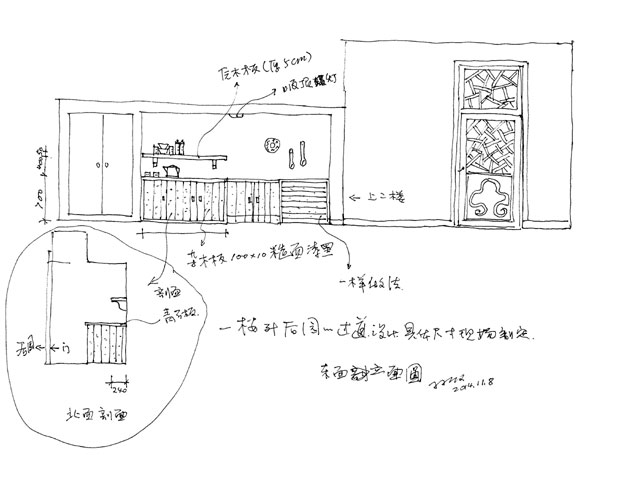 老木板(厚5cm)
吸顶灯
700
← 上二楼
老木板 100×10 粗面漆黑
一样做法
剖面
青石板
←门
240
北面剖面
一楼到后园一过道设计,具体尺寸现场制定.
东面立面图
2014.11.8